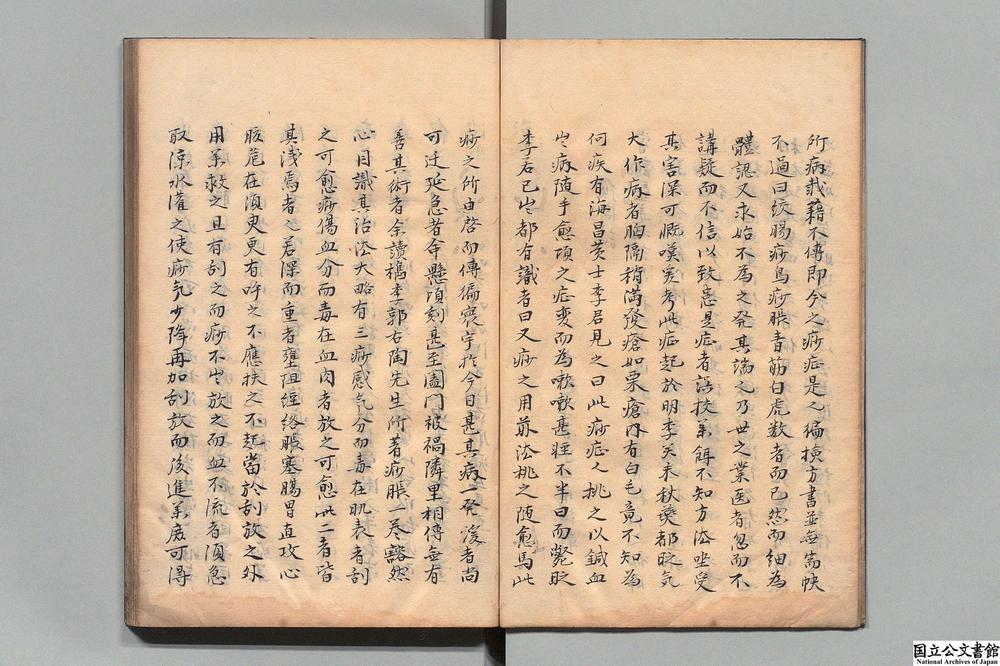 所病載藉不傳即今之痧症是之徧檢方書並無耑帙
不過曰絞腸痧烏痧脹青筋白虎数者而已然而細為
體認又求始不為之発其端之乃世之業医者忽而不
講疑而不信以致患是症者誤投茶餌不知方法坐受
其害深可慨嘆矣考此症起於明季癸未秋燠都眨気
大作病者胸隔稍滿後瘡如栗瘡内有白毛竟不知為
何疾有海昌黄士李君見之曰此痧症之挑之以鍼血
岀病随手愈項之症変而為嗽嗽甚旺不半曰而斃眨
李君已岀都有識者曰又痧之用前法桃之随愈馬此
痧之所由啓而傳徧寰宇扵今日甚其病一発溲者尚
可迁延急者命懸頃刻甚至闔门被禍隣里相傳無有
善其術者余讀檇李郭右陶先生所著痧脹一巻豁然
心目識其治法大略有三痧感气分而毒在肌表者刮
之可愈痧傷血分而毒在血肉者放之可愈此二者皆
其浅焉者之若深而重者壅阻经络脹塞腸胃直攻心
胶危在湏臾更有呼之不應扶之不起當於刮放之外
用茶救之且有刮之而痧不岀放之而血不流者須急
取凉水灌之使痧气少降再加刮放而後進茶庻可得
国立公文書館
National Archives of Japan